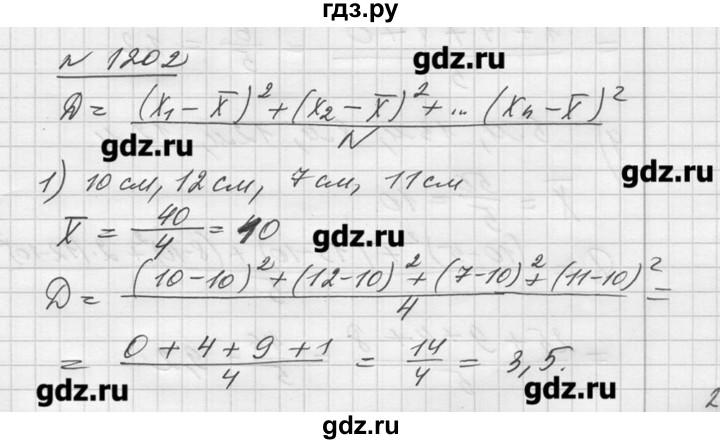 гдз.ру
№ 1202
gdz.ru
D = (x₁ - x̄)² + (x₂ - x̄)² + ... (xₙ - x̄)² / N
gdz.ru
gdz.ru
1) 10 см, 12 см, 7 см, 11 см
x̄ = 40/4 = 10
gdz.ru
D = (10-10)² + (12-10)² + (7-10)² + (11-10)² / 4 =
= 0 + 4 + 9 + 1 / 4 = 14/4 = 3,5.
gdz.ru
gdz.ru
2
gdz.ru